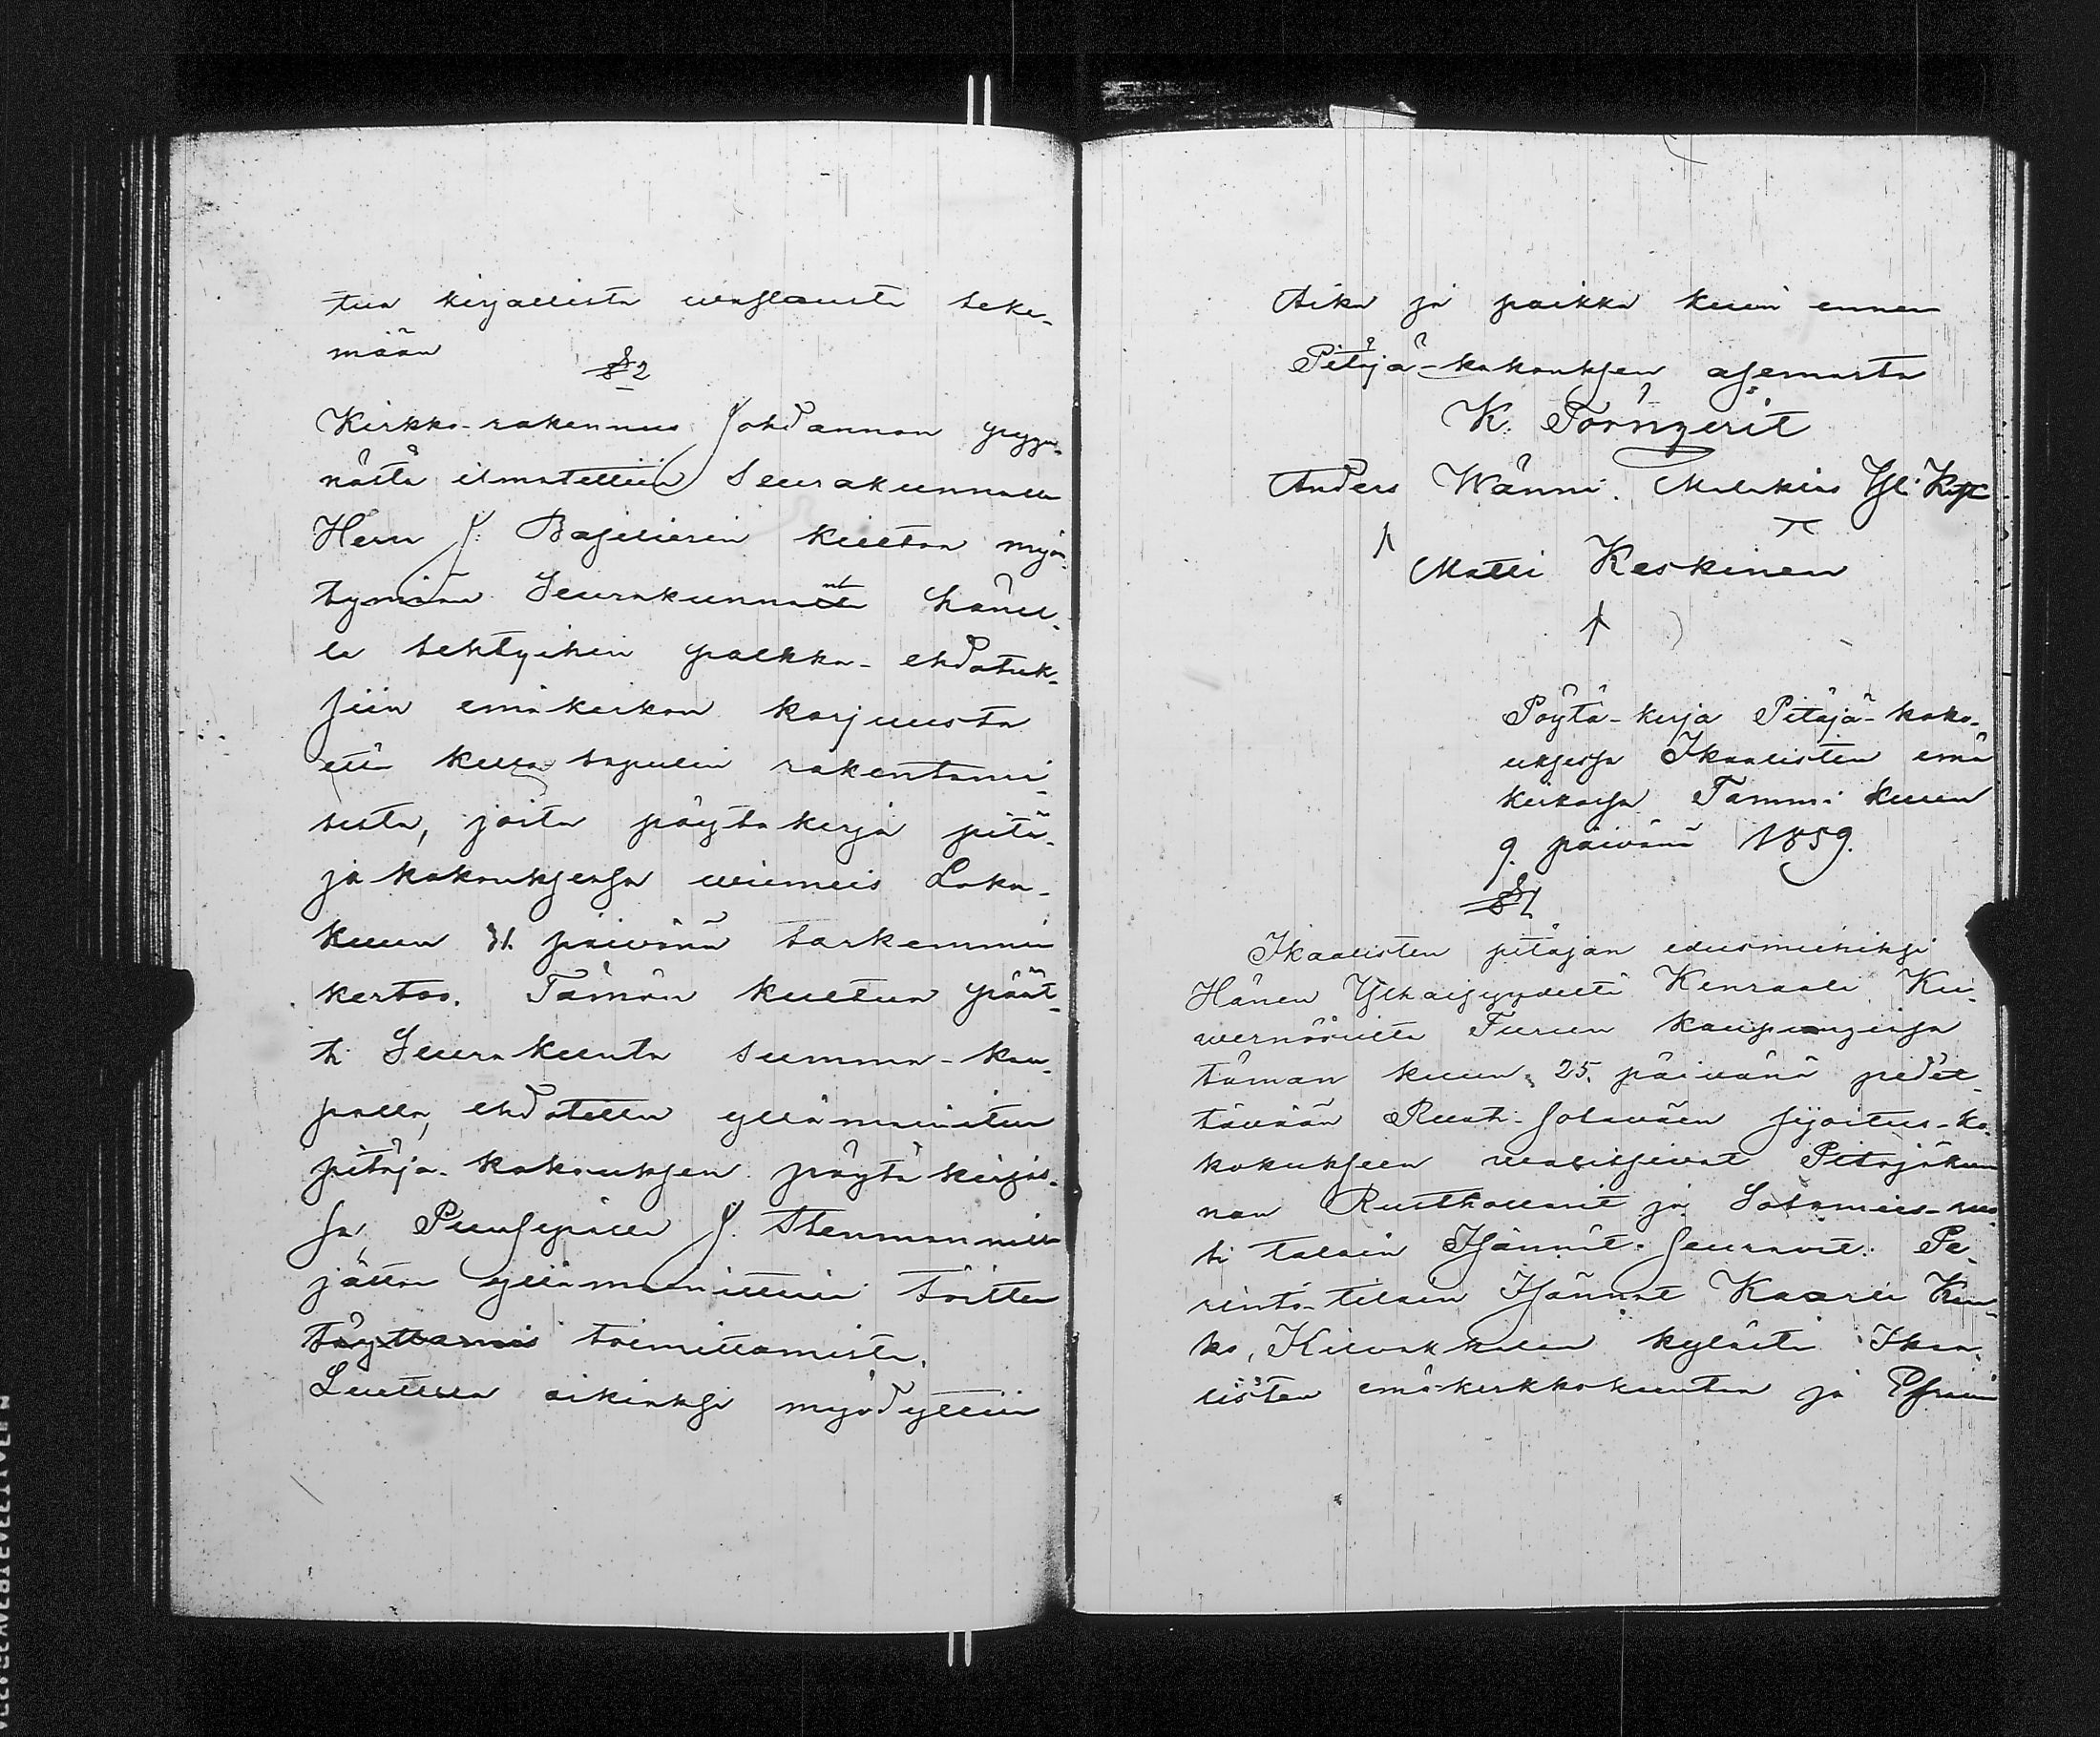 tua kirjallista waslausta teke-
mään
§2
Kirkko-rakennus Johdannon pyyn-
nöstä ilmotettiin Seurakunnalle
Herr J: Basilierin kielton myön-
tymään Seurakunnalta hänel-
le tehtyihin palkka-ehdotuk-
siin emäkirkon korjuusta
että kello tapulin rakentami-
sesta, joita pöytäkirja pitä-
jä kokouksessa wiimeis Loka-
kuun 31. päivänä tarkemmin
kertoo. Tämän kuultua päät-
ti Seurakunta summa-kau-
palla, ehdotellu yllämainitun
pitäjä-kokouksen pöytäkirjas-
sa, Puusepälle J. Stenmannille
jättää yllämainittuin töitten
täyttämis toimittamista.
Luetuxi oikiaksi myödyttiin
Aika ja paikka kuin ennen
Pitäjä-kokouksen asemasta
K. Törnqerit
Anders Wänni. Malakias Yli Kyst
Matti Keskinen
Pöytä-kirja Pitäjä-koko-
uksessa Ikaalisten emä
kirkossa Tammi kuun
9. päivänä 1859.
§1
Ikaalisten pitäjän edusmiehiksi
Hänen Ylhäisyydeltä Kenraali Ku-
wernööriltä Turun kaupungissa
tämän kuun 25. päivänä pidet-
tävään Ruoti-Sotaväen sijoitus-ko-
kokukseen walitsivat Pitäjäkun
nan Rusthollarit ja Sotamies-ruo
ti taloin Isännät seuravat: Pe-
rintö-tiloin Isännät Kaarli
ko, Kilvakkalan kylästä Ikaa-
listen emä-kirkkokuntaa ja Efraim